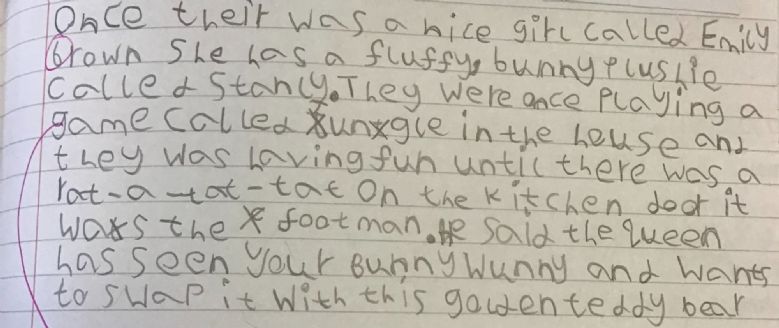 Once their was a nice girl called Emily
brown She has a fluffy, bunny plushie
called Stanly. They were once Playing a
game called in the house and
they was having fun until there was a
rat-a-tat-tat On the kitchen door it
was the footman. He said the queen
has seen your Bunny Wunny and wants
to swap it with this golden teddy bear